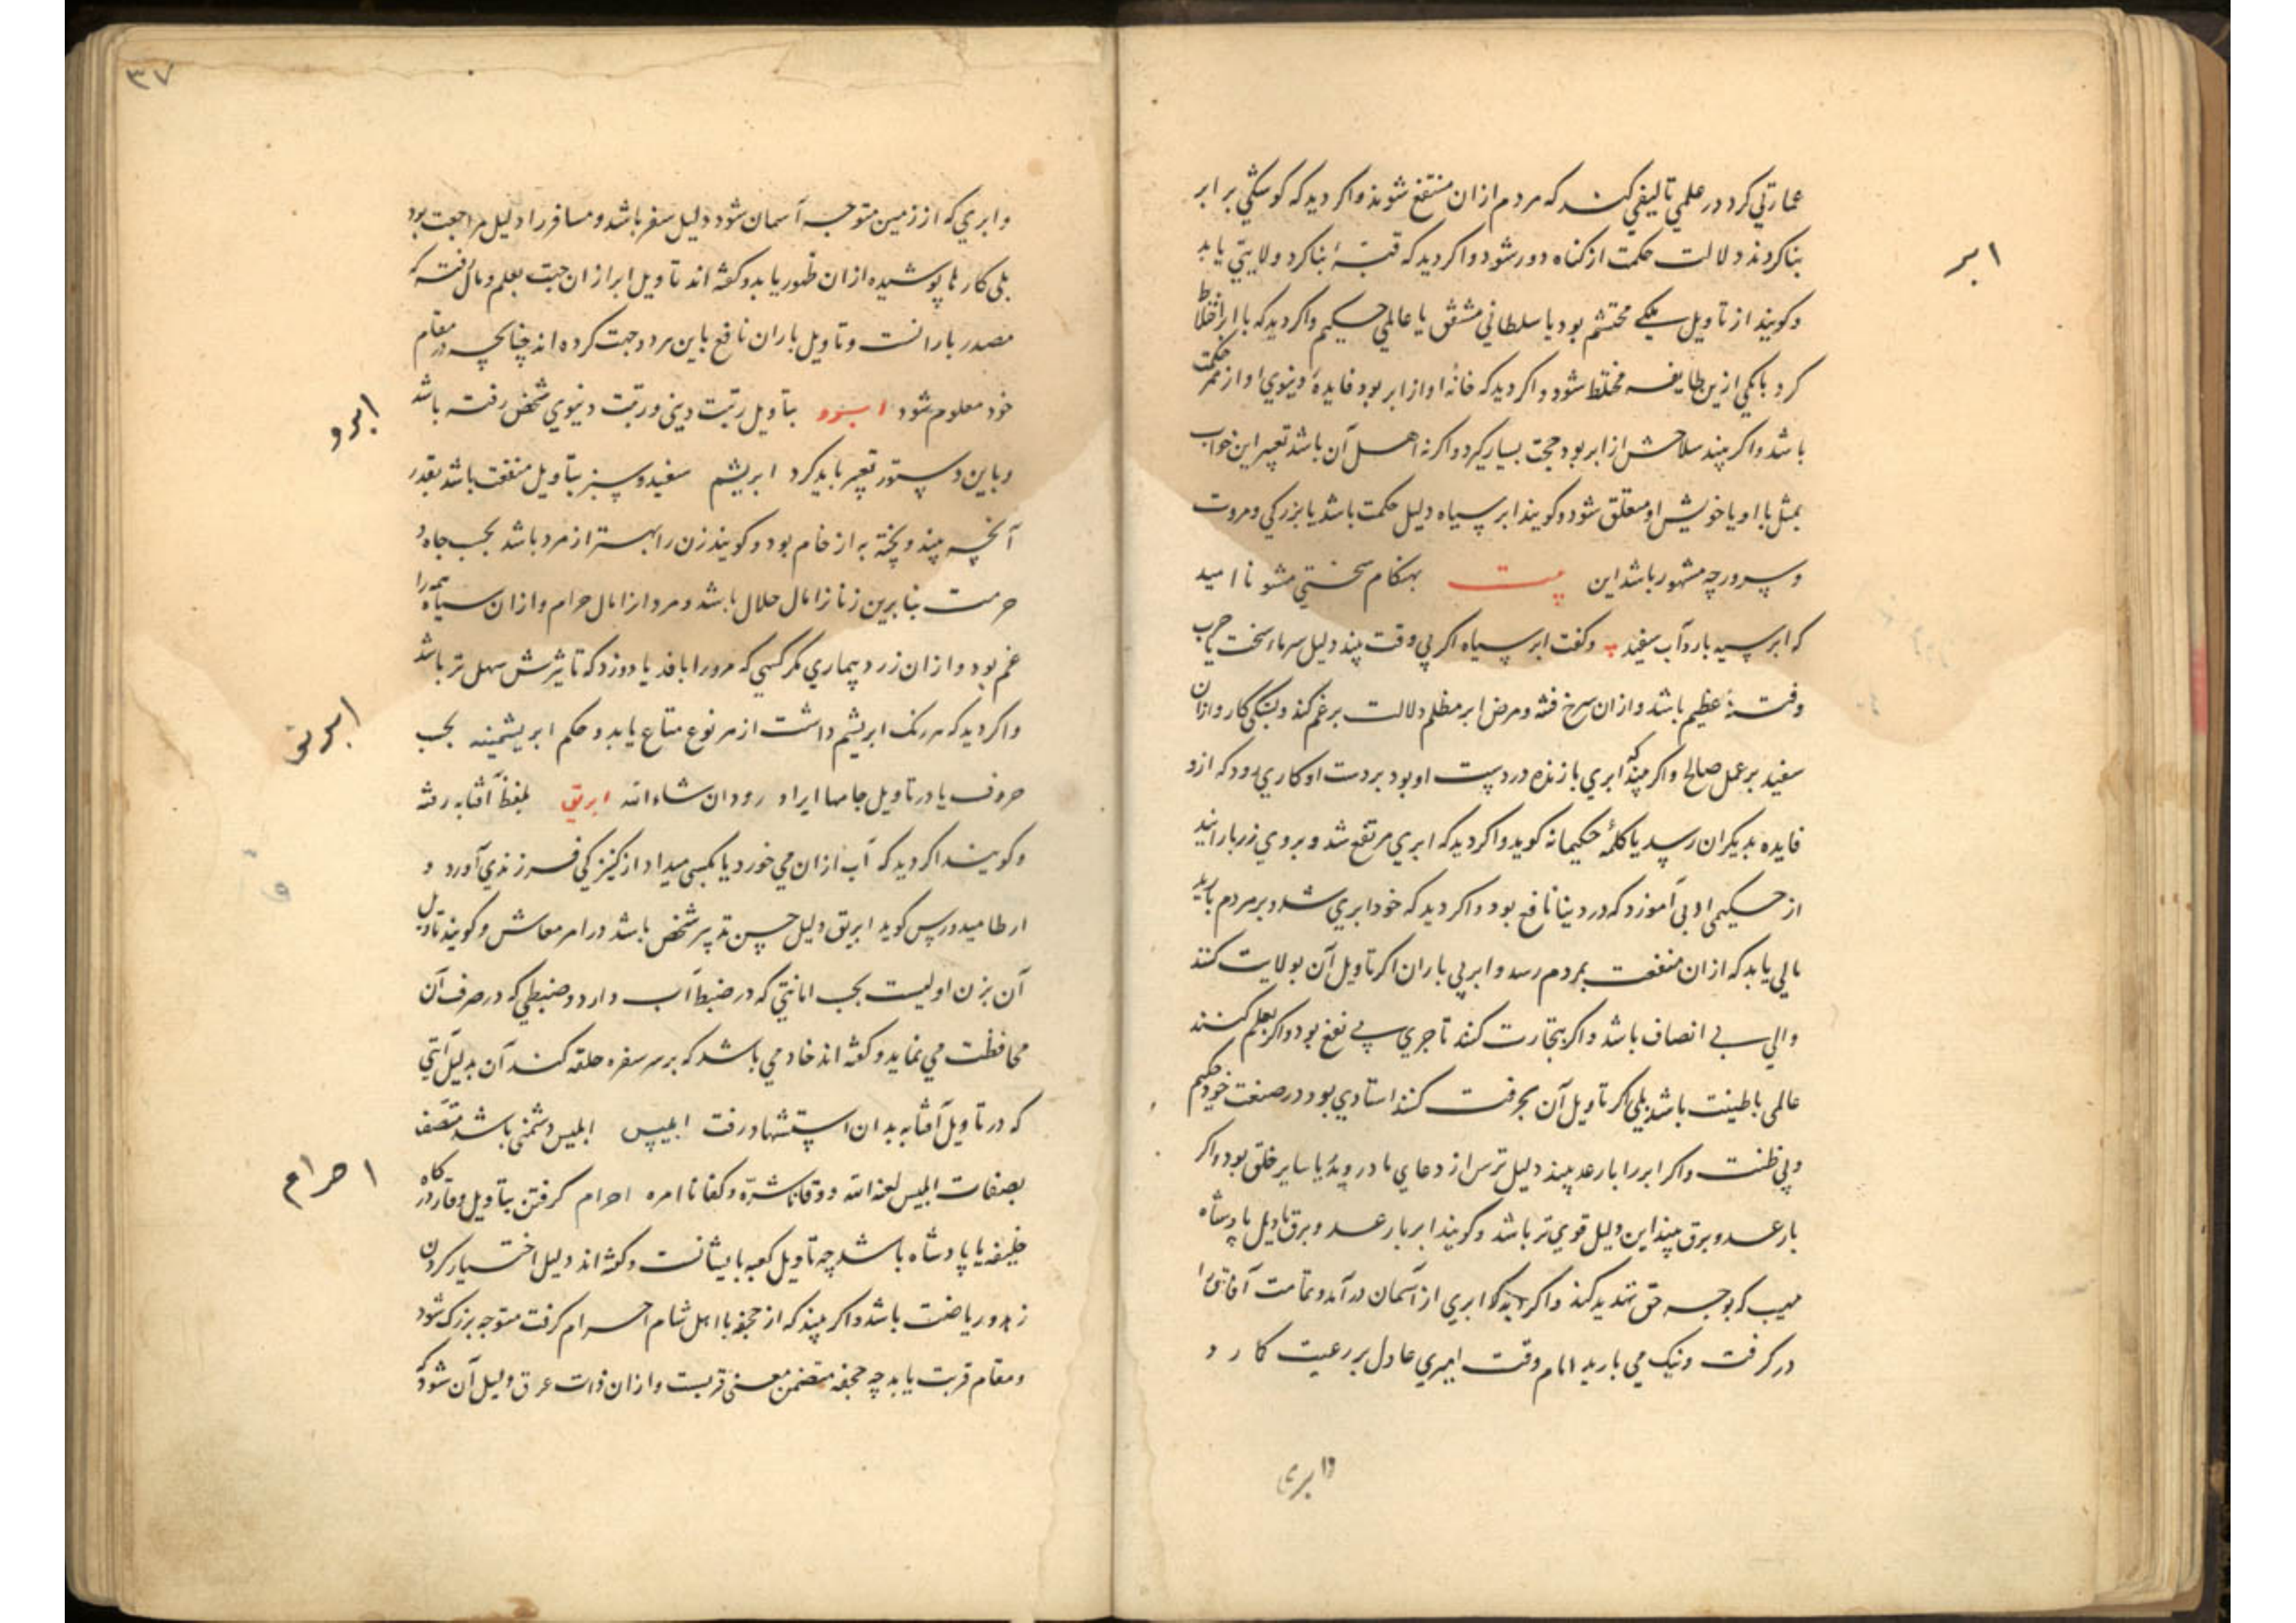 ابر
عمارتی کرد در علمی تالیفی کند که مردم ازان منتفع شوند و اکر دید که کوشکی بر ابر
بنا کردند دلالت حکمت از کناه دور شود و اکر دید که قبهٔ بنا کرد ولایتی یابد
و کویند از تاویل ملکی محتشم بود یا سلطانی مشفق یا عالمی حکیم و اکر دید که با ابر اختلاط
کرد با یکی ازین طایفه مختلط شود و اکر دید که خانهٔ او از ابر بود فایدهٔ دینوی او از ممر حکمت
باشد و اکر بیند سلاحش از ابر بود حجت بسیار کیرد و اکر نه اهل آن باشد تعبیر این خواب
بمثل با او یا خویش او معلق شود و کویند ابر سیاه دلیل حکمت باشد یا بزرکی و مروت
و سرور چه مشهور باشد این بیت بهنکام سختی مشو ناامید
که ابر سیه بارد آب سفید و کفت ابر سیاه اکر بی وقت بیند دلیل سرماء سخت یا حرب
و فتنهٔ عظیم باشد و ازان سرخ فتنه و مرض ابر مظلم دلالت بر غم کند و بستکی کار و ازان
سفید بر عمل صالح و اکر بیند که ابری بازنده در دست او بود بر دست او کاری رود که ازو
فایده بدیکران رسد یا کلمهٔ حکیمانه کوید و اکر دید که ابری مرتفع شد و بروی زر بارانید
از حکیمی ادبی آموزد که در دنیا نافع بود و اکر دید که خود ابری شد و بر مردم بارید
مالی یابد که ازان منفعت بمردم رسد و ابر بی باران اکر تاویل آن بولایت کنند
والی بی انصاف باشد و اکر بتجارت کنند تاجری بی نفع بود و اکر بعلم کنند
عالمی باطینت باشد بلی اکر تاویل آن بحرفت کنند استادی بود در صنعت خود حکیم
و بی ظنت و اکر ابر را با رعد بیند دلیل ترس از دعای مادر و پدر یا سایر خلق بود و اکر
با رعد و برق بیند این دلیل قوی تر باشد و کویند ابر با رعد و برق تاویل پادشاه
مهیب که بوجه حق تهدید کند و اکر دید که ابری از آسمان درآمد و تمامت آفاق را
در کرفت و نیک می بارید امام وقت امیری عادل بر رعیت کارد
وابری
۳۷
و ابری که از زمین متوجه آسمان شود دلیل سفر باشد و مسافر را دلیل مراجعت بود
بلی کارها پوشیده ازان ظهور یابد و کفته اند تاویل ابر ازان جهت بعلم و مال رفته که
مصدر بارانست و تاویل باران نافع باین هر دو جهت کرده اند چنانچه در مقام
خود معلوم شود ابرو بتاویل رتبت دینی و رتبت دنیوی شخص رفته باشد
ابرو
و باین دستور تعبیر باید کرد ابریشم سفید و سبز بتاویل منفعت باشد بقدر
آنچه بیند و پخته به از خام بود و کویند زن را بهتر از مرد باشد بحسب جاه و
حرمت بنابرین زنانرا مال حلال باشد و مردانرا مال حرام و ازان سیاه همه را
غم بود و ازان زرد بیماری مکر کسی که مرورا بافد یا دوزد که تاثیرش سهل تر باشد
و اکر دید که هر رنک ابریشم داشت از هر نوع متاع یابد و حکم ابریشمینه بحسب
ابریق
حروف یا در تاویل جامها ایراد رود ان شاء الله ابریق بلفظ آفتابه رفته
و کویند اکر دید که آب ازان می خورد یا بکسی میداد از کنیزکی فرزندی آورد و
ارطامیدورس کوید ابریق دلیل حسن تدبیر شخص باشد در امر معاش و کویند تاویل
آن بزن اولیست بحسب امانتی که در ضبط آب دارد و ضبطی که در صرف آن
محافظت می نماید و کفته اند خادمی باشد که بر سر سفره حلقه کند آن بدلیل آیتی
که در تاویل آفتابه بدان استشهاد رفت ابلیس ابلیس دشمنی باشد متصف
احرام
بصفات ابلیس لعنه الله و وقانا شره و کفانا امره احرام کرفتن بتاویل وقار درکاه
خلیفه یا پادشاه باشد چه تاویل کعبه بایشانست و کفته اند دلیل اختیار کردن
زهد و ریاضت باشد و اکر بیند که از جحفه با اهل شام احرام کرفت متوجه بزرک شود
و مقام قربت یابد چه جحفه متضمن معنی قربست و ازان ذات عرق دلیل آن شود که